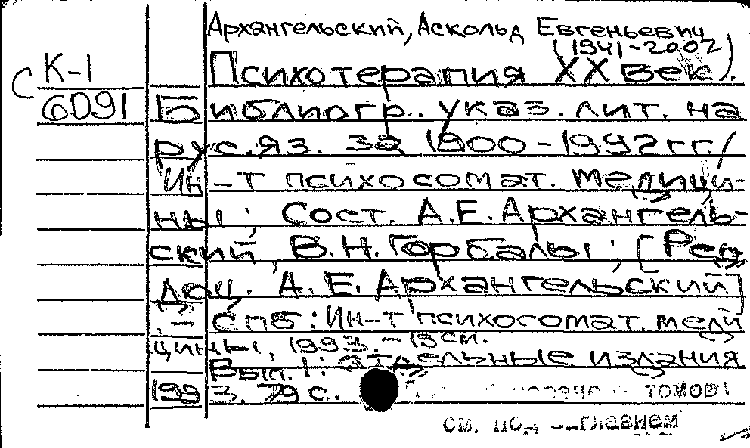 Архангельский, Аскольд Евгеньевич
(1941-2002)
С К-1 Психотерапия XX век.
6091 Библиогр. указ. лит. на
рус.яз. за 1900-1992гг/
Ин-т психосомат. медици-
ны; Сост. А.Е.Архангель-
ский, В.Н.Горбалы; [Ред
доц. А.Е.Архангельский]
.- Спб: Ин-т психосомат. меди
цины, 1993. - 19см.
Вып.1: Отдельные издания
1993. 79 с. томов!
см.